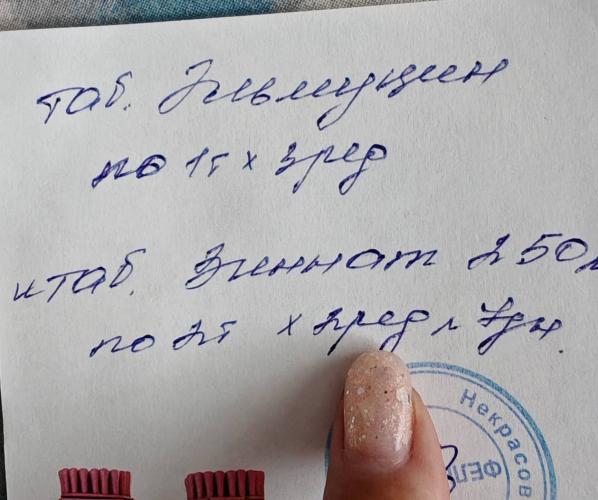 таб. Эльмуцин
по 1т x 3 р ед
и таб. Зиннат 250
по 2т x 2р ед л 7дн.
Некрасов
ФЕЛ